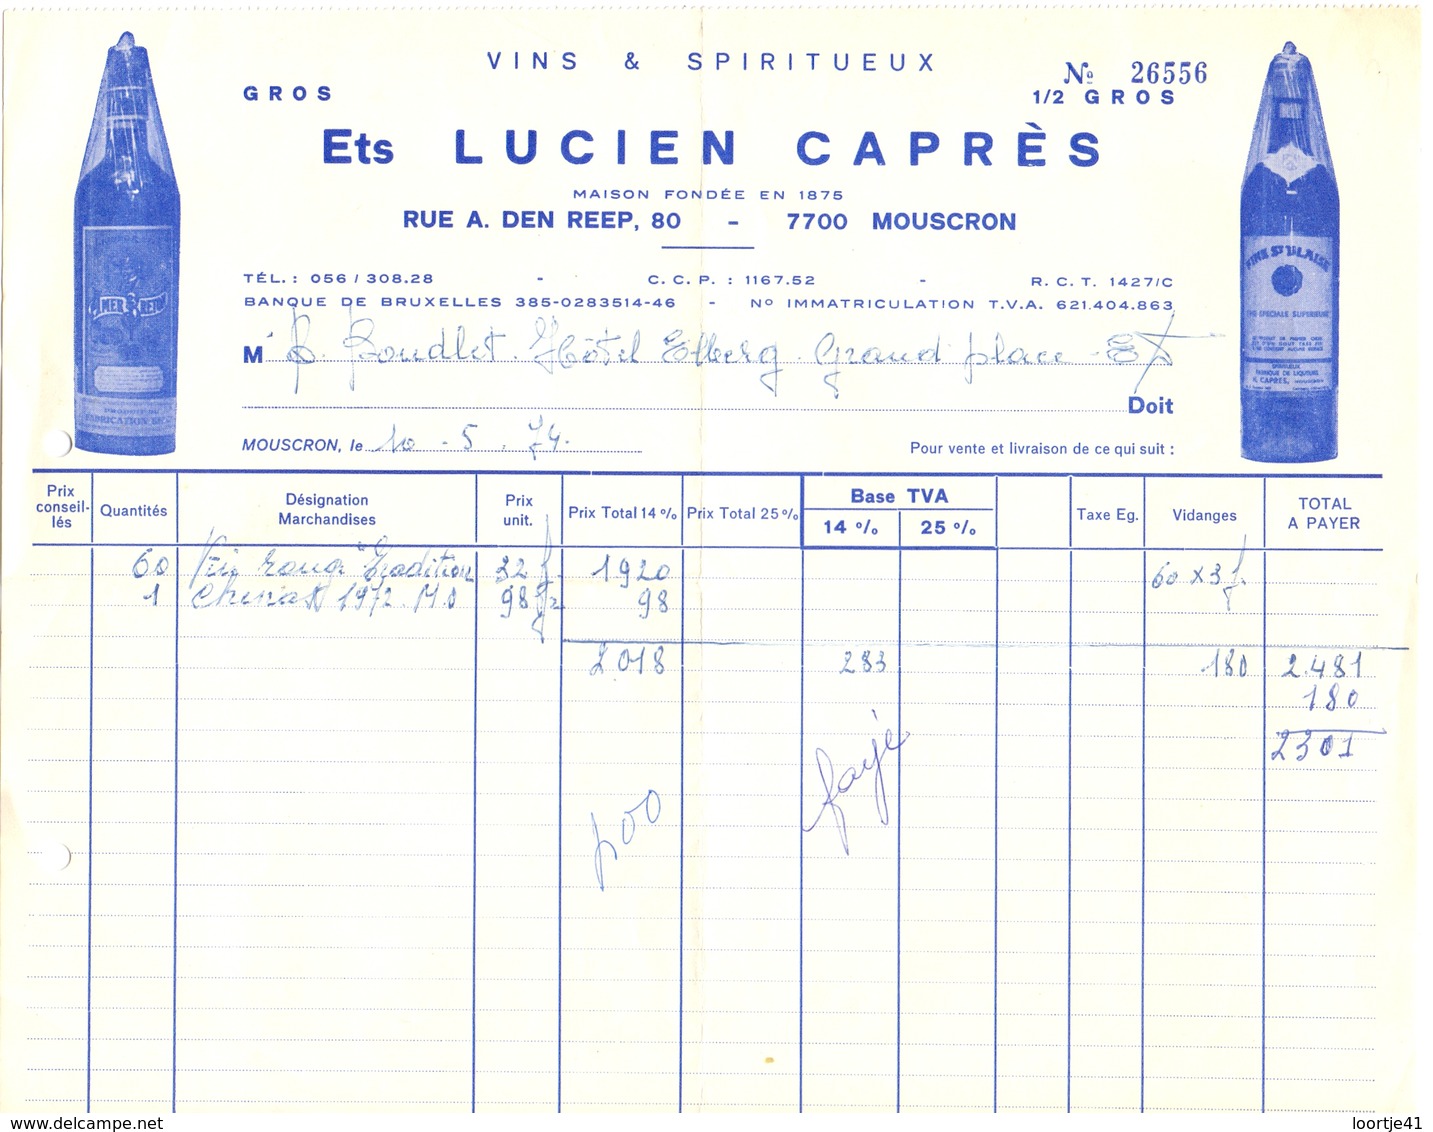 VINS & SPIRITUEUX
Nº 26556
GROS
1/2 GROS
Ets LUCIEN CAPRÈS
MAISON FONDÉE EN 1875
RUE A. DEN REEP, 80 - 7700 MOUSCRON
TÉL. : 056 / 308.28 - C. C. P. : 1167.52 - R. C. T. 1427/C
BANQUE DE BRUXELLES 385-0283514-46 - Nº IMMATRICULATION T.V.A. 621.404.863
M Hôtel Grand place
Doit
MOUSCRON, le 10 - 5 . 74.
Pour vente et livraison de ce qui suit :
FINE ST BLAISE
FINE SPECIALE SUPERIEURE
Prix conseil-lés
Quantités
Désignation Marchandises
Prix unit.
Prix Total 14 %
Prix Total 25 %
Base TVA
14 %
25 %
Taxe Eg.
Vidanges
TOTAL A PAYER
60 Vin rouge Tradition 32 f. 1920 60 x 3 f.
1 1972 98 98
2.018 283 180 2.481
180
2301
www.delcampe.net
loortje41